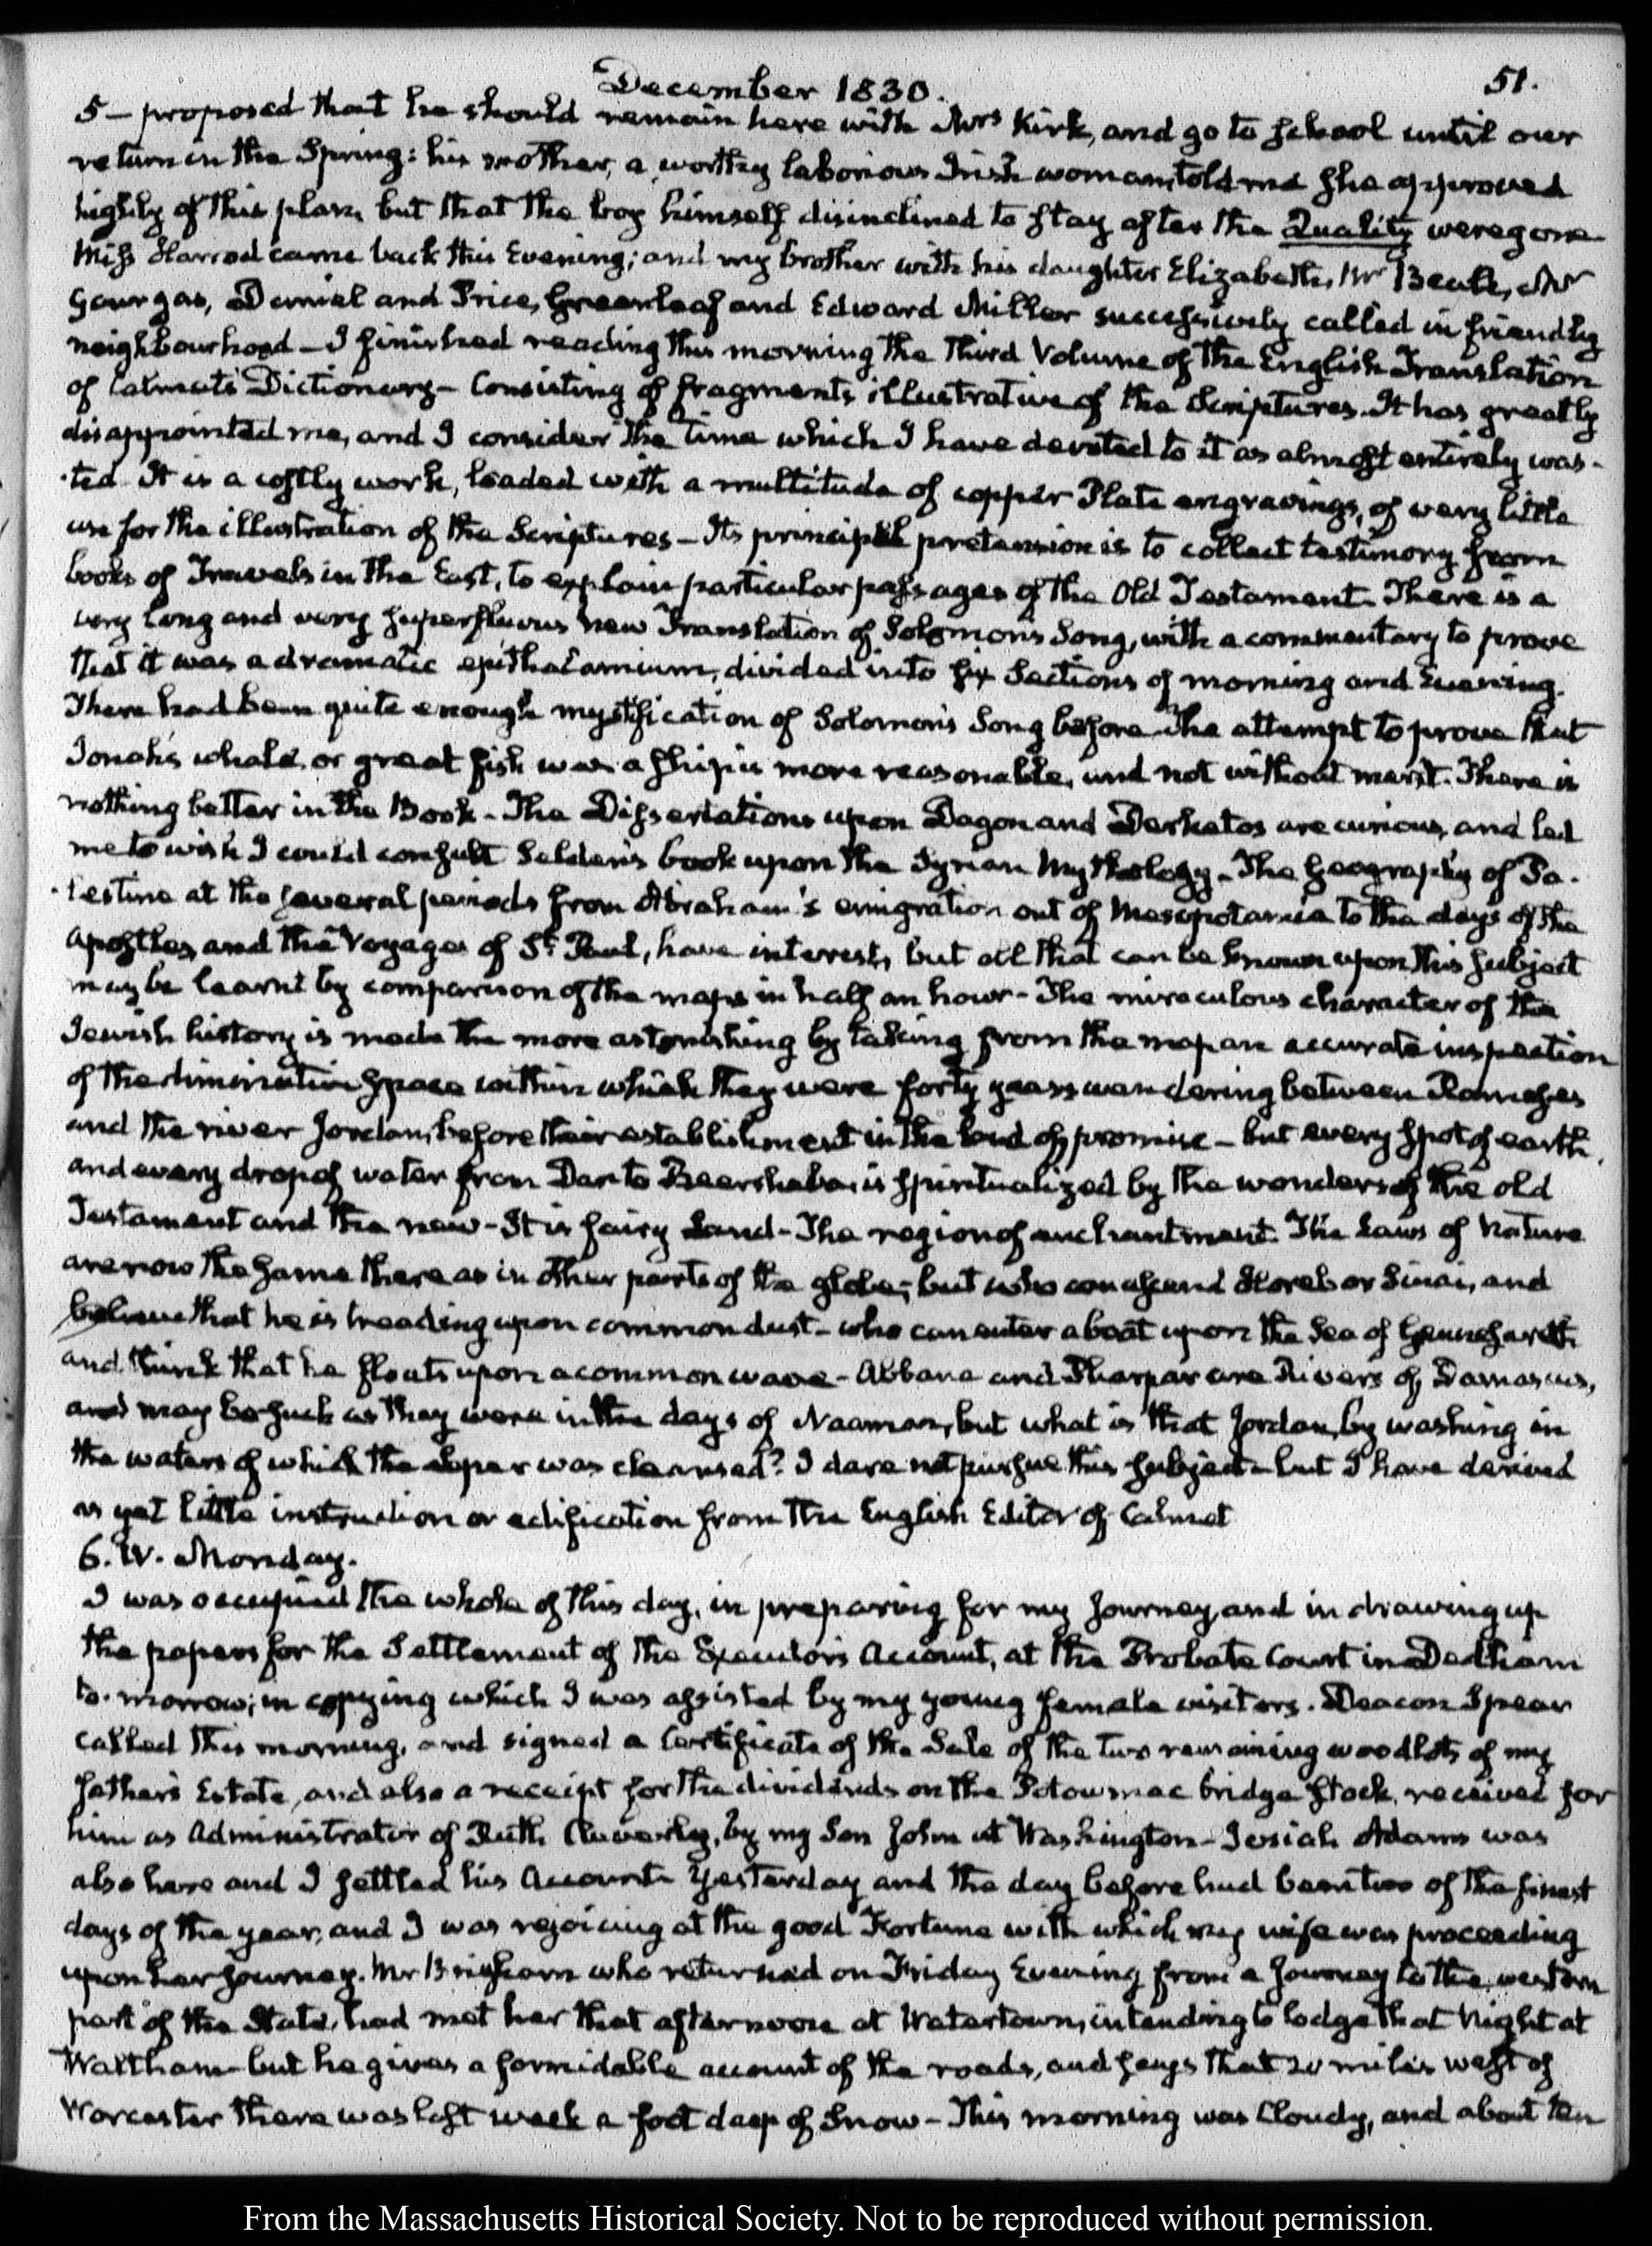 December 1830.
51.
5 — proposed that he should remain here with Mrs Kirk, and go to school until our
return in the Spring: his mother, a worthy laborious Irish woman, told me she approved
highly of this plan, but that the boy himself disinclined to stay after the Quality were gone
Miss Harrod came back this Evening; and my brother with his daughter Elizabeth, Mr Beale, Mr
Gourgas, Daniel and Price, Greenleaf and Edward Miller successively called in friendly
neighbourhood — I finished reading this morning the Third Volume of the English Translation
of Calmet's Dictionary — Consisting of fragments illustrative of the Scriptures. It has greatly
disappointed me, and I consider the time which I have devoted to it as almost entirely was-
-ted. It is a costly work, loaded with a multitude of copper Plate engravings, of very little
use for the illustration of the Scriptures — Its principal pretension is to collect testimony from
books of Travels in the East, to explain particular passages of the Old Testament. There is a
very long and very superfluous new Translation of Solomon's Song, with a commentary to prove
that it was a dramatic epithalamium, divided into six Sections of morning and Evening.
There had been quite enough mystification of Solomon's Song before. The attempt to prove that
Jonah's whale, or great fish was a ship is more reasonable, and not without merit. There is
nothing better in the Book — The Dissertations upon Dagon and Derketos are curious, and led
me to wish I could consult Selden's book upon the Syrian Mythology — The Geography of Pa-
-lestine at the several periods from Abraham's emigration out of Mesopotamia to the days of the
Apostles, and the Voyages of St. Paul, have interest, but all that can be known upon this subject
may be learnt by comparison of the maps in half an hour — The miraculous character of the
Jewish history is made the more astonishing by taking from the map an accurate inspection
of the diminutive space within which they were forty years wandering between Rameses
and the river Jordan, before their establishment in the land of promise — but every spot of earth,
and every drop of water from Dan to Beersheba, is spiritualized by the wonders of the old
Testament and the new — It is fairy Land — The region of enchantment. The Laws of Nature
are now the same there as in other parts of the globe; but who can ascend Horeb or Sinai, and
believe that he is treading upon common dust — who can enter a boat upon the Sea of Gennesareth
and think that he floats upon a common wave — Abbana and Pharpar are Rivers of Damascus,
and may be such as they were in the days of Naaman, but what is that Jordan, by washing in
the waters of which the leper was cleansed? I dare not pursue this subject — but I have derived
as yet little instruction or edification from the English Editor of Calmet
6. IV. Monday.
I was occupied the whole of this day, in preparing for my Journey, and in drawing up
the papers for the Settlement of the Executor's Account, at the Probate Court in Dedham
to-morrow; in copying which I was assisted by my young female visitors. Deacon Spear
called this morning, and signed a Certificate of the Sale of the two remaining woodlots of my
father's Estate, and also a receipt for the dividends on the Potowmac bridge Stock, received for
him as Administrator of Ruth by my Son John at Washington — Josiah Adams was
also here and I settled his Account. Yesterday and the day before had been two of the finest
days of the year, and I was rejoicing at the good Fortune with which my wife was proceeding
upon her Journey. Mr Brigham who returned on Friday Evening from a Journey to the western
part of the State, had met her that afternoon at Watertown, intending to lodge that Night at
Waltham — but he gives a formidable account of the roads, and says that 20 miles west of
Worcester there was last week a foot deep of Snow — This morning was Cloudy, and about ten
From the Massachusetts Historical Society. Not to be reproduced without permission.